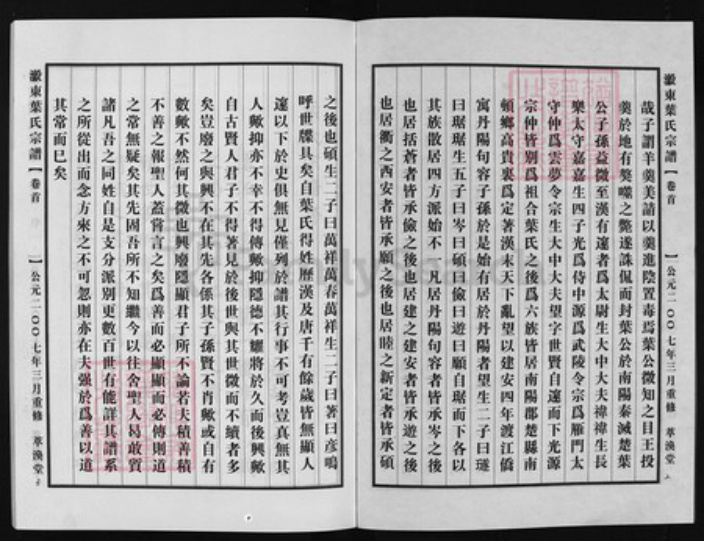 瀫東葉氏宗譜【卷首
一】公元二〇〇七年三月重修 萃渙堂
哉子謂羊羹美請以羹進陰置毒焉葉公微知之目王投
羹於地有獒噬之斃遂誅侃而封葉公於南陽秦滅楚葉
公子孫益微至漢有達者爲太尉生大中大夫禕禕生長
樂太守嘉嘉生四子光爲侍中源爲武陵令宗爲雁門太
守仲爲雲夢令宗生大中大夫望字世賢自遠而下光源
宗仲皆別爲祖合葉氏之後爲六族皆居南陽郡楚縣南
頓鄉高貴裏爲定著漢末天下亂望以建安四年渡江僑
寓丹陽句容子孫於是始有居於丹陽者望生二子曰璲
曰琚琚生五子曰岑曰碩曰儉曰遊曰願自琚而下各以
其族散居四方派始不一凡居丹陽句容者皆承岑之後
也居括蒼者皆承儉之後也居建之建安者皆承遊之後
也居衢之西安者皆承願之後也居睦之新定者皆承碩
之後也碩生二子曰萬祥萬春萬祥生二子曰著曰彦嗚
呼世牒具矣自葉氏得姓歷漢及唐千有餘歲皆無顯人
遠以下於史俱無見僅列於譜其行事不可考豈真無其
人歟抑亦不幸不得傳歟抑隱德不耀將於久而後興歟
自古賢人君子不得著見於後世與其世微而不續者多
矣豈廢之與興不在其先各係其子孫賢不肖歟或自有
數歟不然何其微也興廢隱顯君子所不論若夫積善積
不善之報聖人蓋嘗言之矣爲善而必顯顯而必傳則道
之常無疑矣其先固吾所不知繼今以往舍聖人曷敢質
諸凡吾之同姓自是支分派別更數百世有能詳其譜系
之所從出而念方來之不可忽則亦在夫强於爲善以道
其常而已矣
瀫東葉氏宗譜【卷首
一】公元二〇〇七年三月重修 萃渙堂